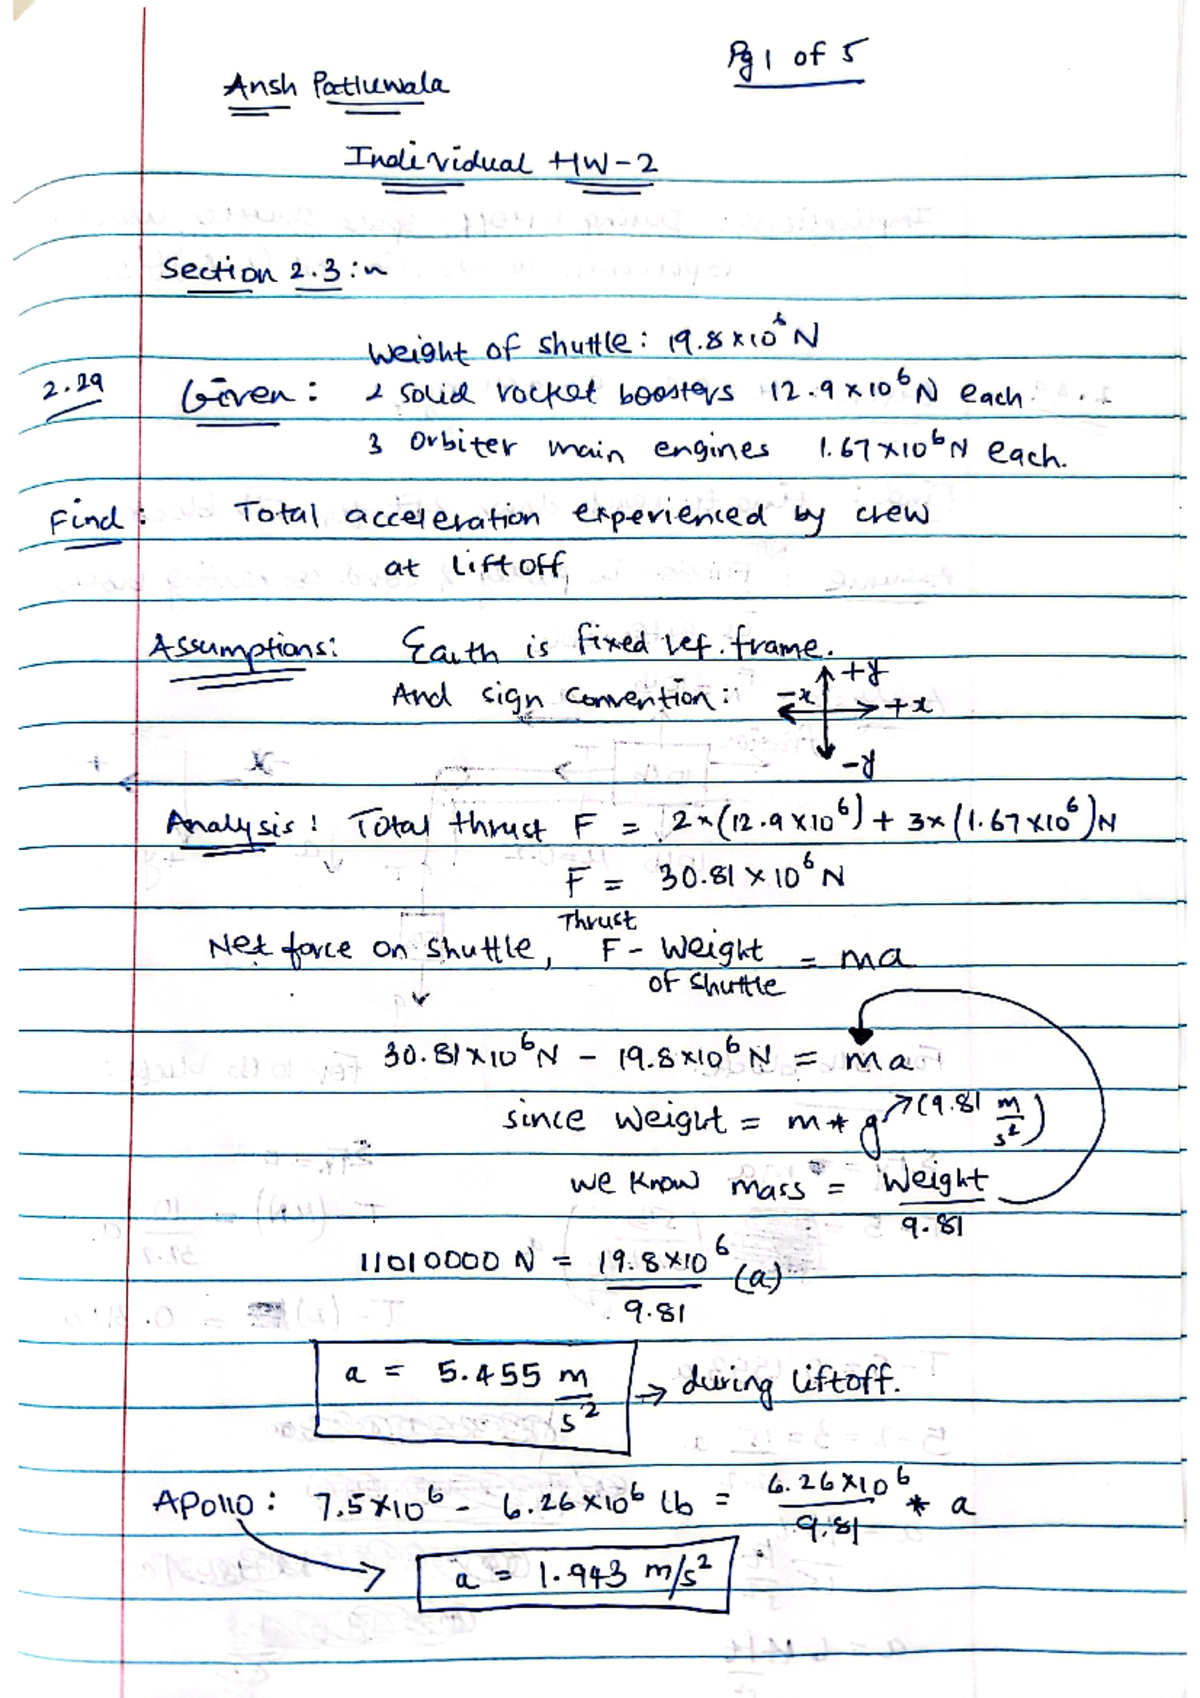 Pg 1 of 5
Ansh Patluwala
Individual HW-2
Section 2.3:~
Weight of shuttle: 19.8x10⁶ N
2.29 Given: 2 solid rocket boosters 12.9x10⁶ N each.
3 Orbiter main engines 1.67x10⁶ N each.
Find: Total acceleration experienced by crew
at liftoff,
Assumptions: Earth is fixed ref. frame.
And sign convention:
+y
-x +x
-y
Analysis: Total thrust F = 2x(12.9x10⁶) + 3x(1.67x10⁶)N
F = 30.81x10⁶ N
Thrust
Net force on shuttle, F - Weight = ma
of shuttle
30.81x10⁶N - 19.8x10⁶ N = ma
since weight = m * g (9.81 m/s²)
we know mass = Weight/9.81
11010000 N = 19.8x10⁶/9.81 (a)
a = 5.455 m/s² → during liftoff.
Apollo: 7.5x10⁶ - 6.26x10⁶ lb = 6.26x10⁶/9.81 * a
a = 1.943 m/s²